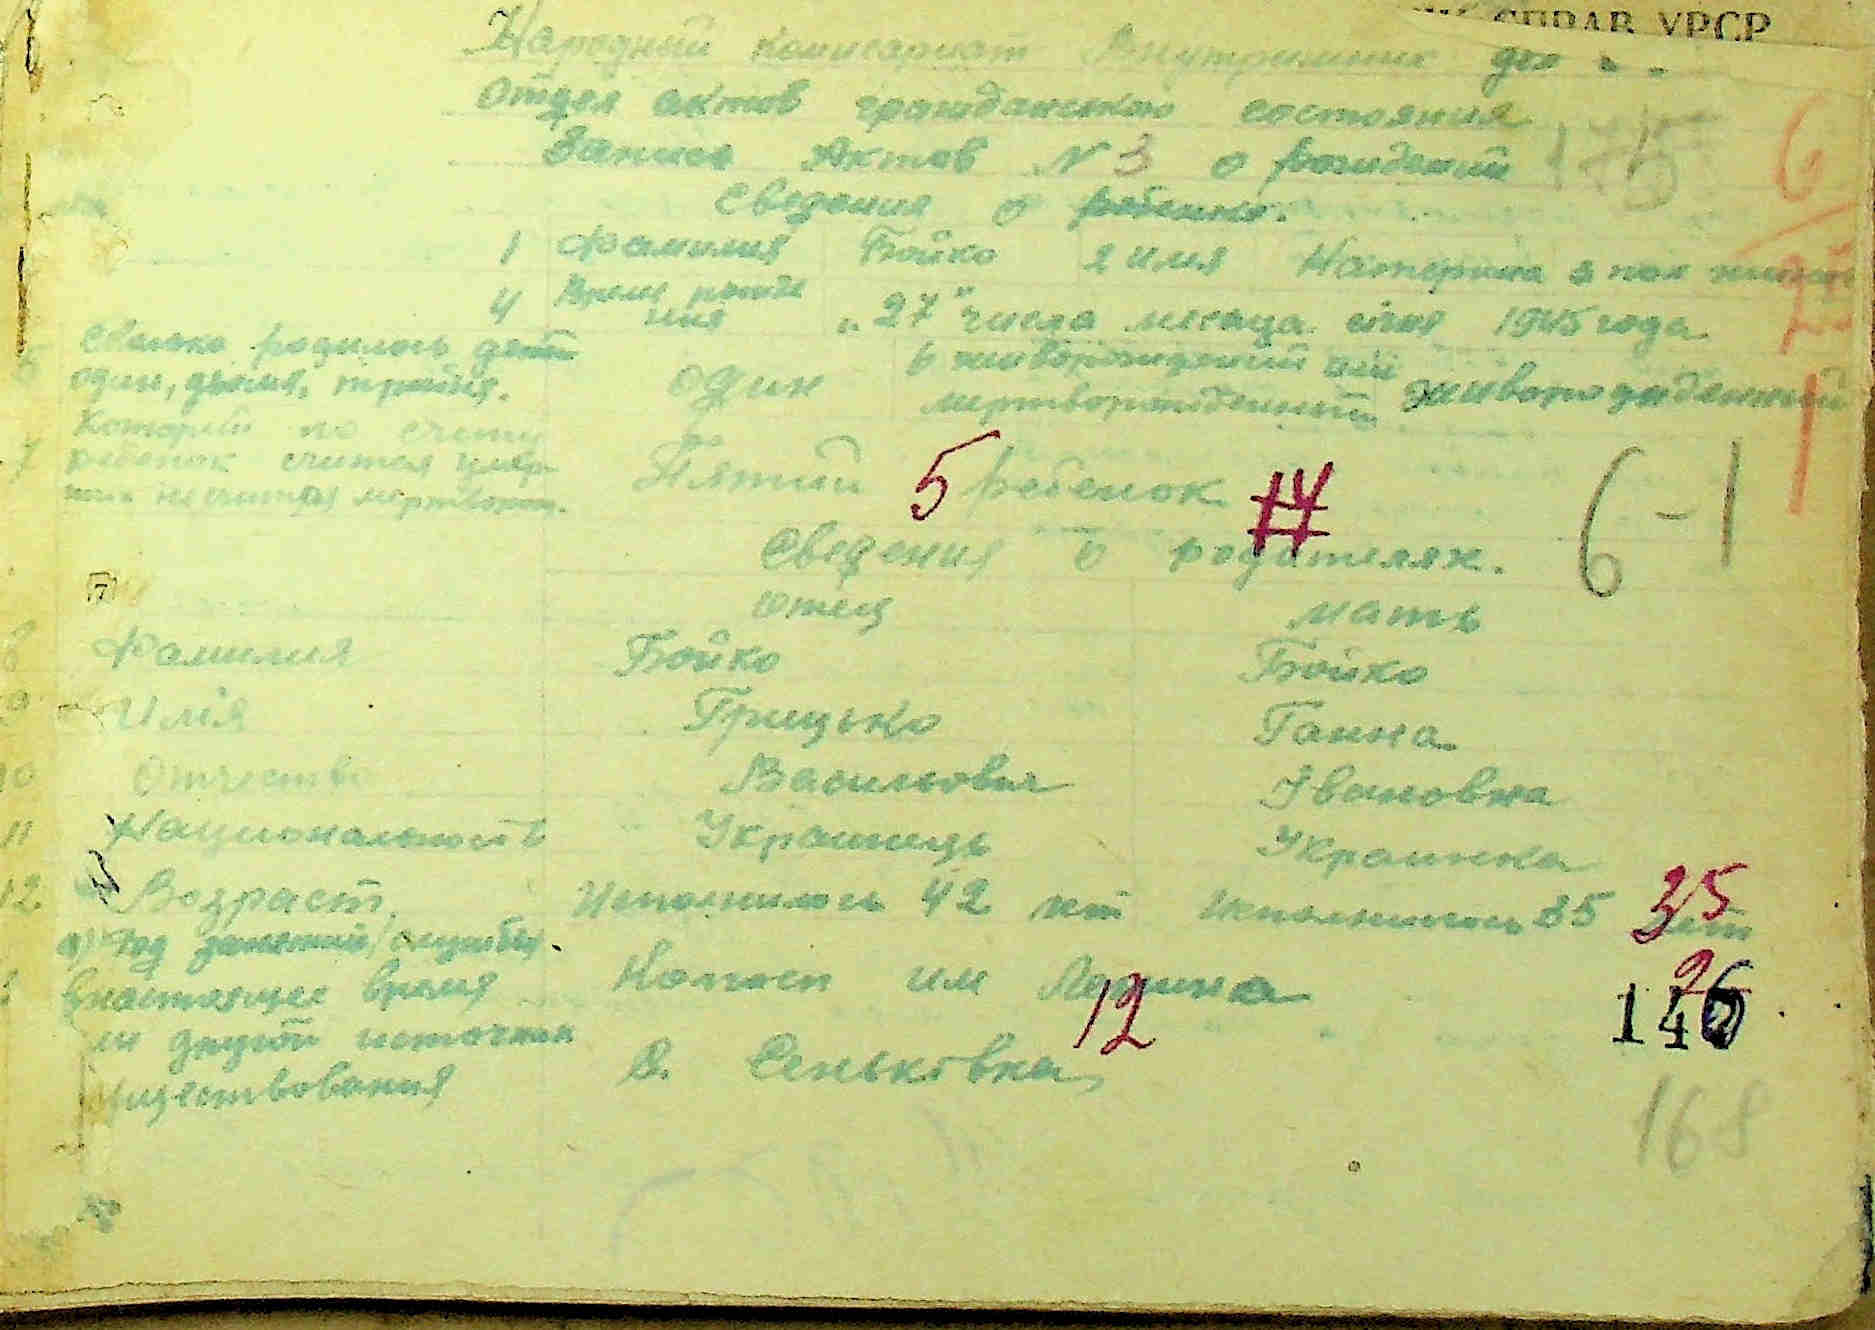 СПРАВ УРСР
Народний комисариат Внутришних дел
Отдел актов гражданскаю состояния
Запись Актов № 3 о рождений 175
Сведения о ребенке.
1 Фамилия Бойко 2 имя Катерина 3 пол
4 Время рожде
ния „27" числа месяца 1945 года
5 Сколько родилось детей
один, двойня, тройня. один 6 живорожденний или
мертворожденний живорожденний
7 Который по счету
ребенок считая умер
ших не считая мертворож. Пятий 5 ребенок 14
6-1
Сведения о родителях.
отец мать
8 Фамилия Бойко Бойко
9 Имія Грицько Ганна
10 Отчество Васильович Івановна
11 Национальность Украинець Украинка
12 Возраст Исполнилось 42 лет Исполнилось 35 лет 35
а) Род занятий/службы
внастоящее время Колхоз им Ленина 26
12 140
ли другой источник
существования с. Сеньковка
168